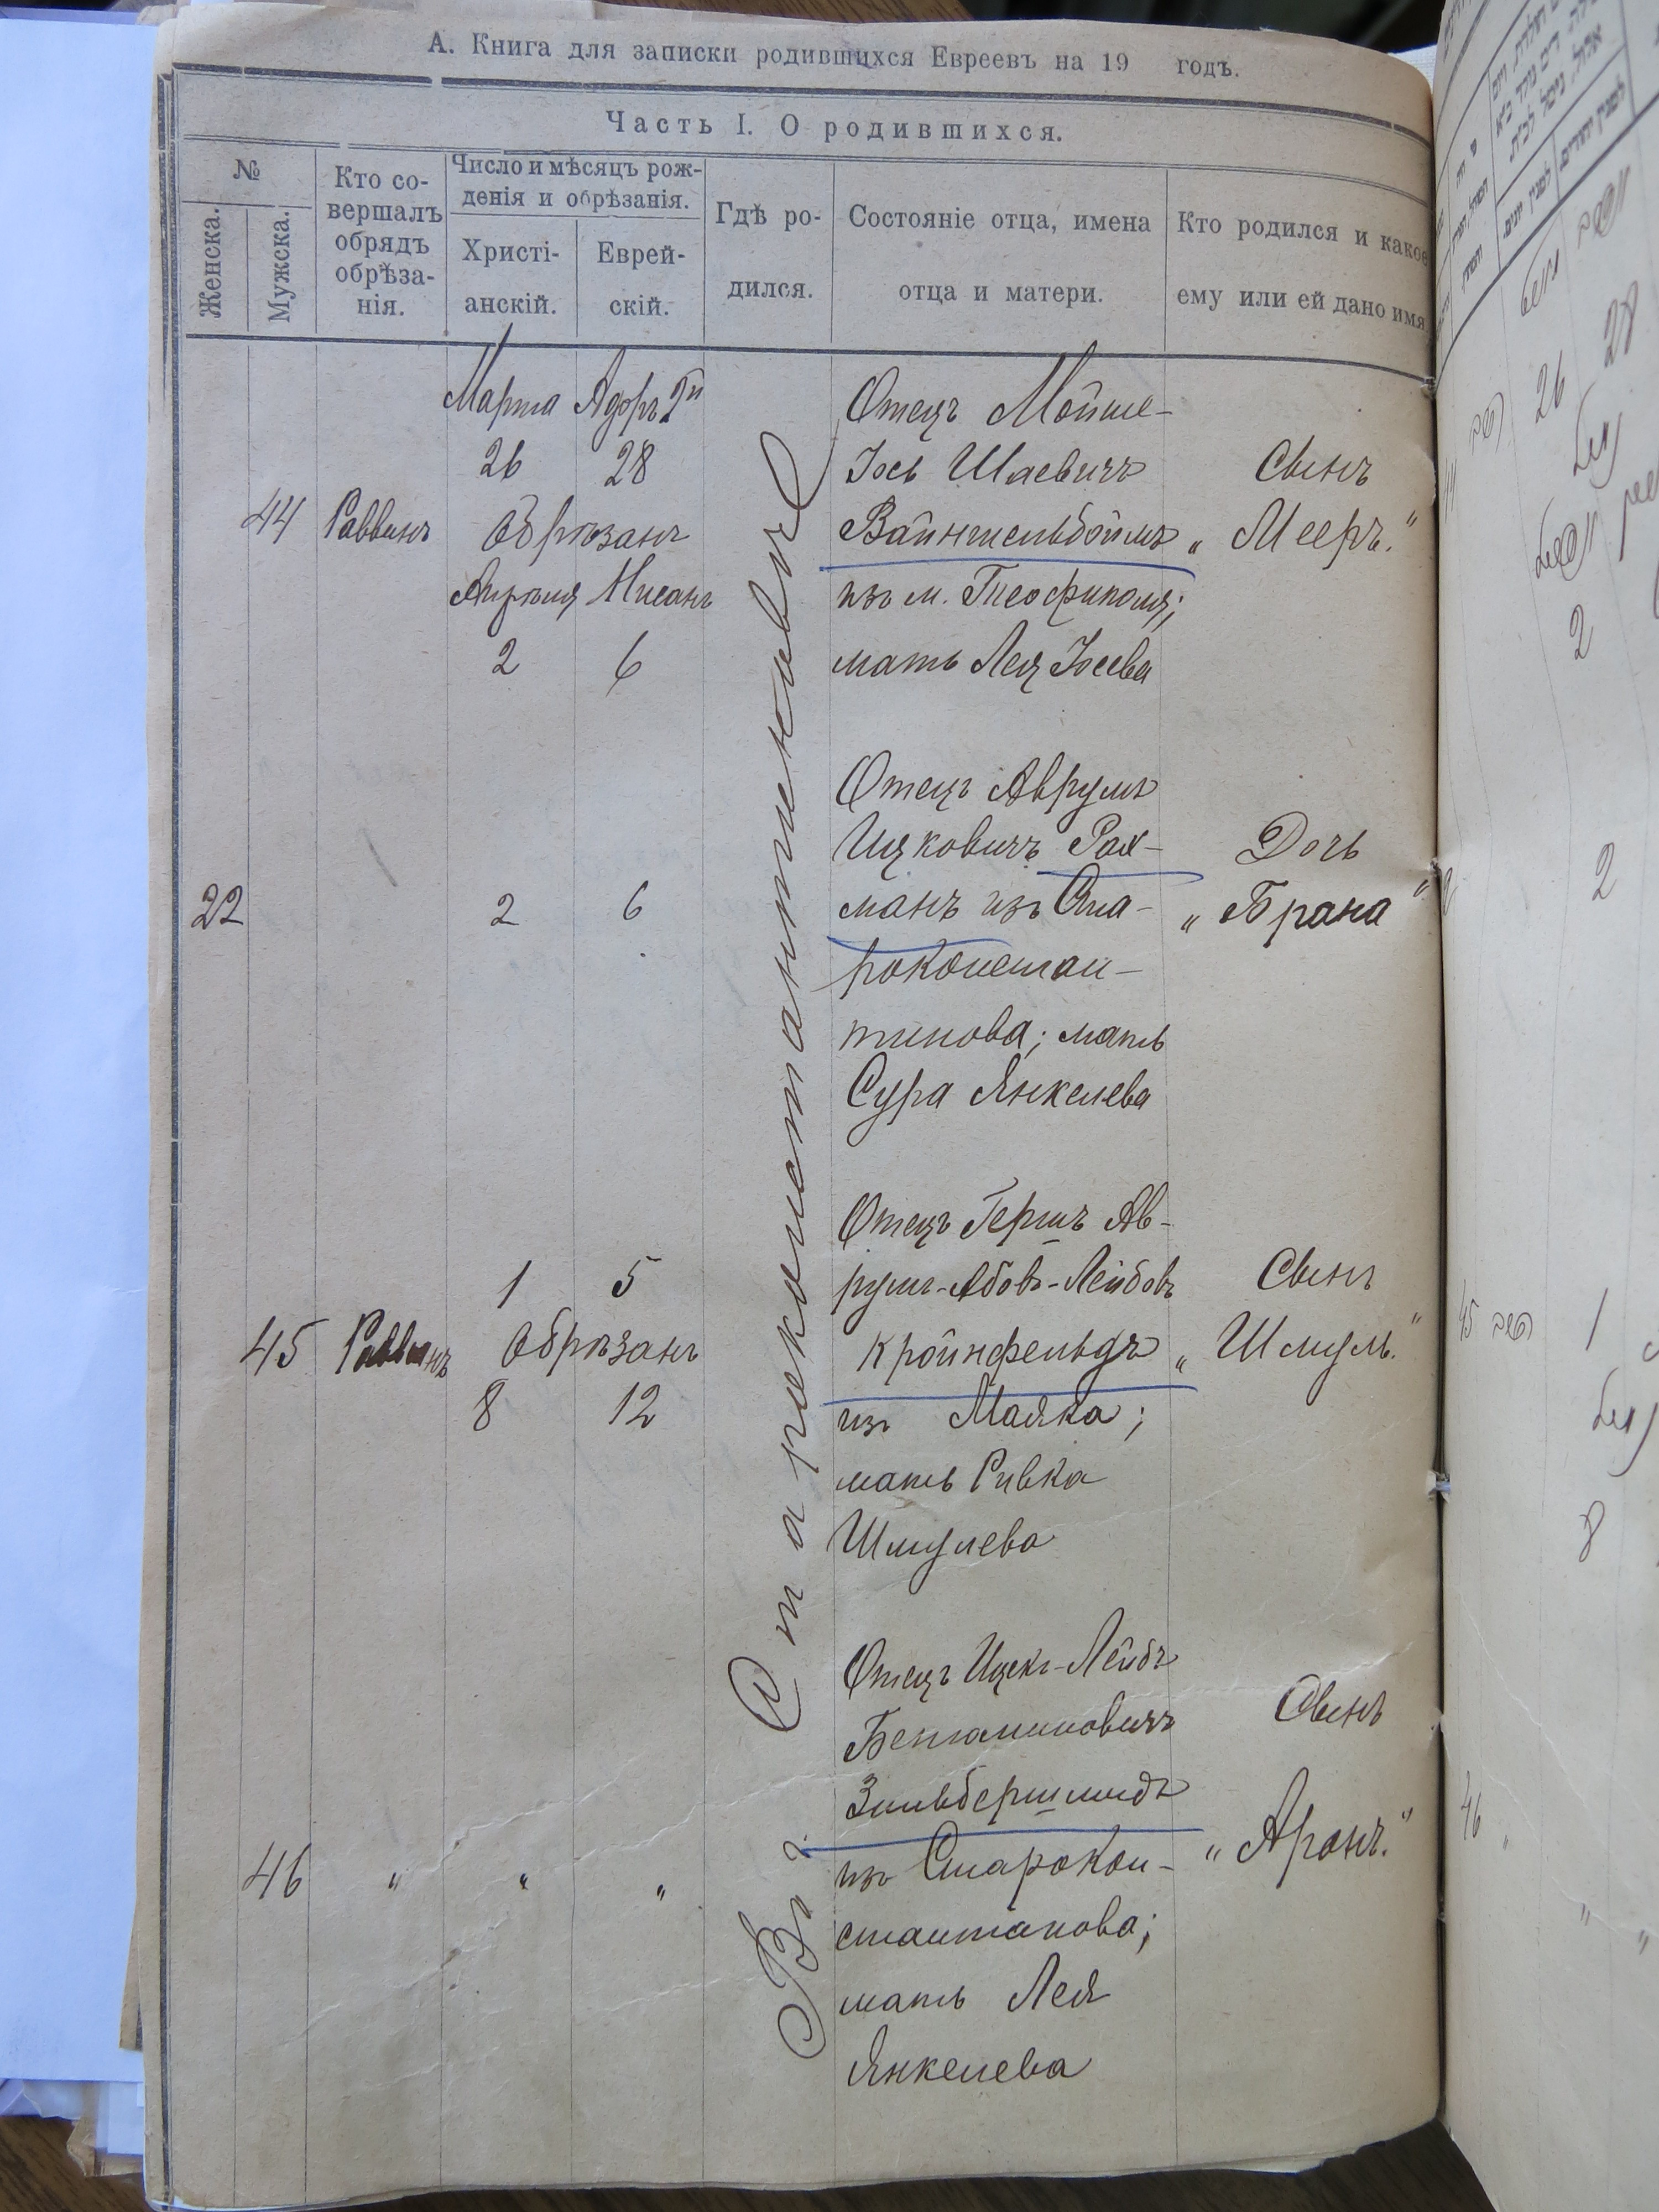 А. Книга для записки родившихся Евреевъ на 19 годъ.
Часть I. О родившихся.
№
Женска.
Мужска.
Кто со-
вершалъ
обрядъ
обрѣза-
нія.
Число и мѣсяцъ рож-
денія и обрѣзанія.
Христі-
анскій.
Еврей-
скій.
Гдѣ ро-
дился.
Состояніе отца, имена
отца и матери.
Кто родился и какое
ему или ей дано имя
Въ Староконстантиновѣ
44
Раввинъ
Марта Адоръ 2й
26 28
Обрѣзанъ
Апрѣля Нисанъ
2 6
Отецъ Мойше-
Іось Шаевичъ
Вайнтельбоймъ
изъ м. Теофиполя;
мать Лея Іосева
Сынъ
„Мееръ."
22
2 6
Отецъ Аврумъ
Ицковичъ Рах-
манъ изъ Ста-
роконстан-
тинова; мать
Сура Янкелева
Дочь
„Брана"
45
Раввинъ
1 5
Обрѣзанъ
8 12
Отецъ Гершъ Ав-
румъ-Абовъ-Лейбовъ
Кройнфельдъ
изъ Маяка;
мать Ривка
Шмулева
Сынъ
„Шмуль."
46
" " "
Отецъ Ицекъ-Лейбъ
Бенъаминовичъ
Зильбершмидъ
изъ Старокон-
стантинова;
мать Лея
Янкелева
Сынъ
„Аронъ."
26 28
2
2
45
1
8
46